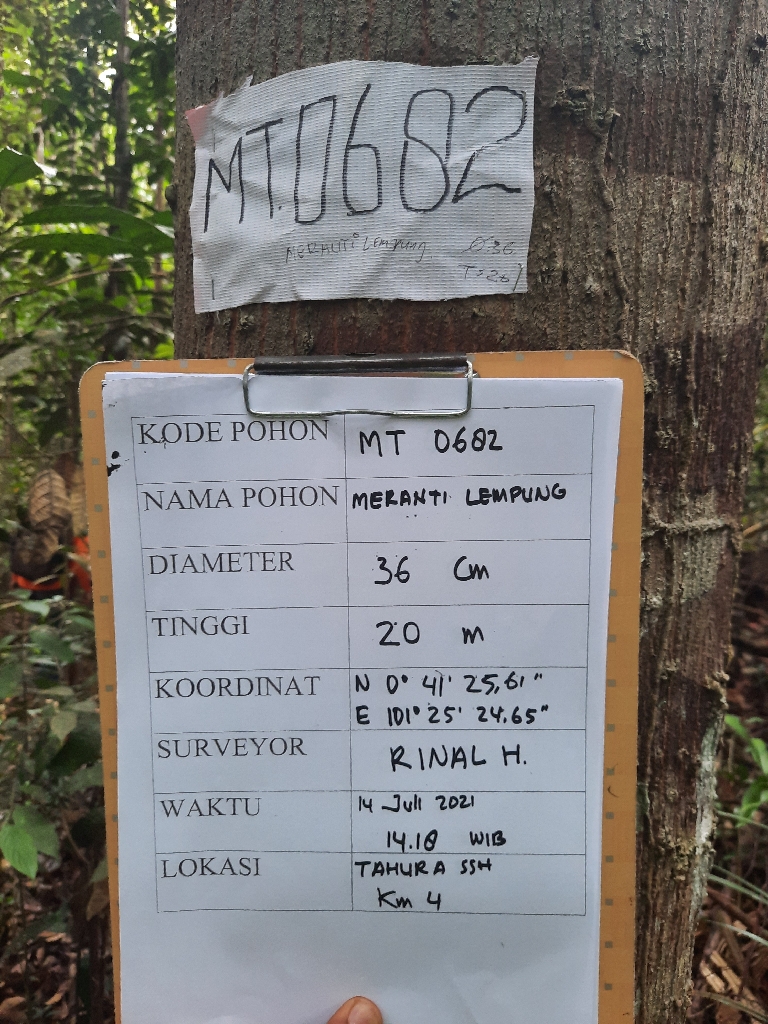 MT.0682
MERANTI LEMPUNG Ø:36
T=20
KODE POHON MT 0682
NAMA POHON MERANTI LEMPUNG
DIAMETER 36 Cm
TINGGI 20 m
KOORDINAT N 0° 41' 25,61"
E 101° 25' 24.65"
SURVEYOR RINAL H.
WAKTU 14 Juli 2021
14.18 WIB
LOKASI TAHURA SSH
Km 4